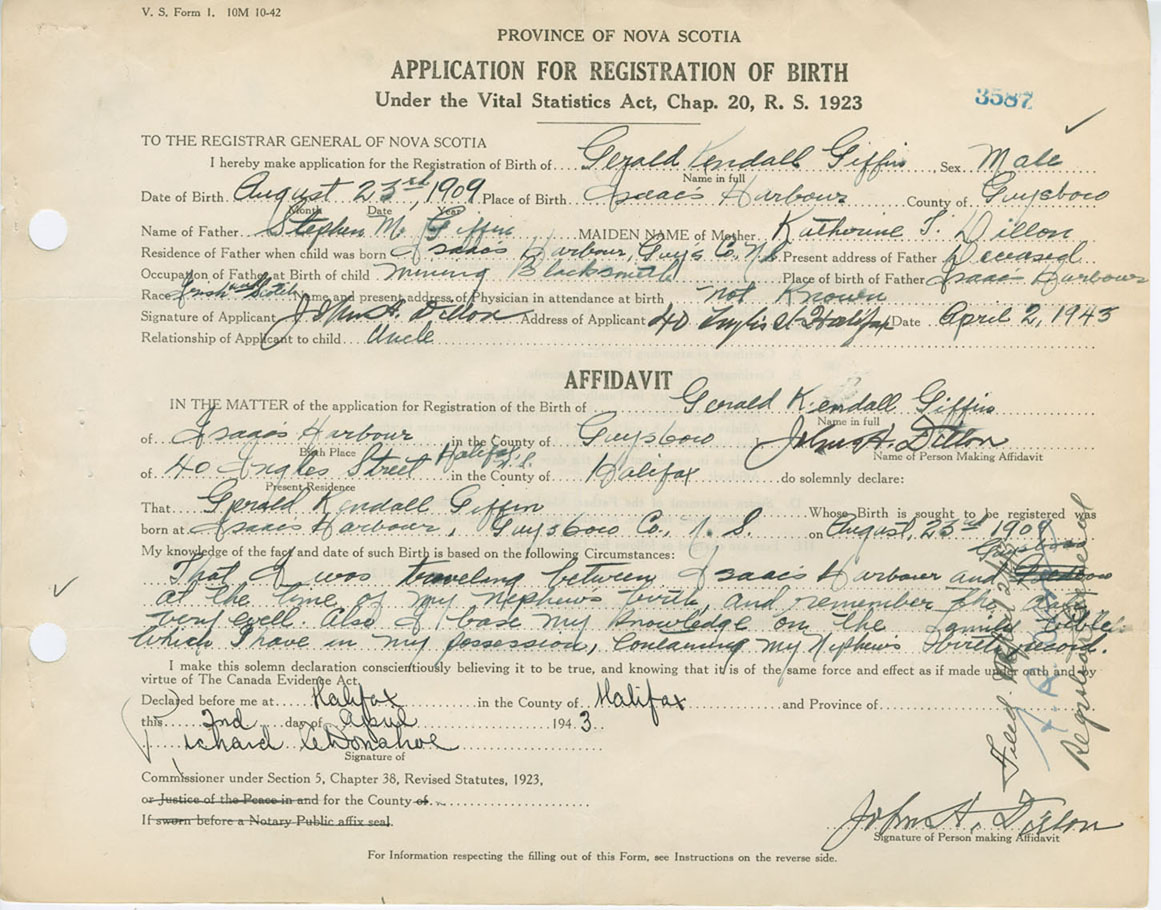 V. S. Form 1. 10M 10-42
PROVINCE OF NOVA SCOTIA
APPLICATION FOR REGISTRATION OF BIRTH
Under the Vital Statistics Act, Chap. 20, R. S. 1923
3587
TO THE REGISTRAR GENERAL OF NOVA SCOTIA
I hereby make application for the Registration of Birth of Gerald Kendall Giffin, Sex Male
Name in full
Date of Birth August 23rd, 1909 Place of Birth Isaac's Harbour County of Guysboro
Month Date Year
Name of Father Stephen M. Giffin MAIDEN NAME of Mother Katherine T. Dillon
Residence of Father when child was born Isaac's Harbour, Guys. Co. N.S. Present address of Father Deceased
Occupation of Father at Birth of child Mining Blacksmith Place of birth of Father Isaac's Harbour
Race Irish and Scotch Name and present address of Physician in attendance at birth not Known
Signature of Applicant John A. Dillon Address of Applicant 40 Inglis St Halifax Date April 2, 1943
Relationship of Applicant to child Uncle
AFFIDAVIT
IN THE MATTER of the application for Registration of the Birth of Gerald Kendall Giffin
Name in full
of Isaac's Harbour in the County of Guysboro John A. Dillon
Birth Place Name of Person Making Affidavit
of 40 Ingles Street Halifax, N.S. in the County of Halifax do solemnly declare:
Present Residence
That Gerald Kendall Giffin Whose Birth is sought to be registered was
born at Isaacs Harbour, Guysboro Co., N. S. on August, 23rd 1909
My knowledge of the fact and date of such Birth is based on the following Circumstances:
Guysboro
That I was traveling between Isaac's Harbour and
at the time of my nephew's birth, and remember the
very well. Also I base my knowledge on the Family Bible
which I have in my possession, containing my Nephew's birth record.
I make this solemn declaration conscientiously believing it to be true, and knowing that it is of the same force and effect as if made under oath and by
virtue of The Canada Evidence Act.
Declared before me at Halifax in the County of Halifax and Province of
this 2nd day of April 1943
Richard A Donahoe
Signature of
Commissioner under Section 5, Chapter 38, Revised Statutes, 1923,
or Justice of the Peace in and for the County of
If sworn before a Notary Public affix seal.
John A. Dillon
Signature of Person making Affidavit
For Information respecting the filling out of this Form, see Instructions on the reverse side.
Registrar General